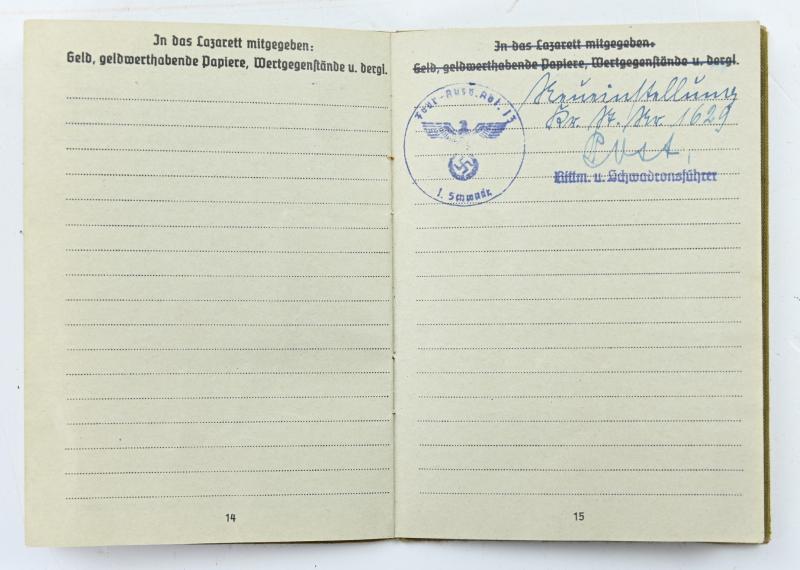 In das Lazarett mitgegeben:
Geld, geldwerthabende Papiere, Wertgegenstände u. dergl.
14
In das Lazarett mitgegeben.
Geld, geldwerthabende Papiere, Wertgegenstände u. dergl.
Neueinstellung
Kr. St. Nr 1629
Rittm. u. Schwadronsführer
Ausb. Abt. 13
1. Schwadr.
15